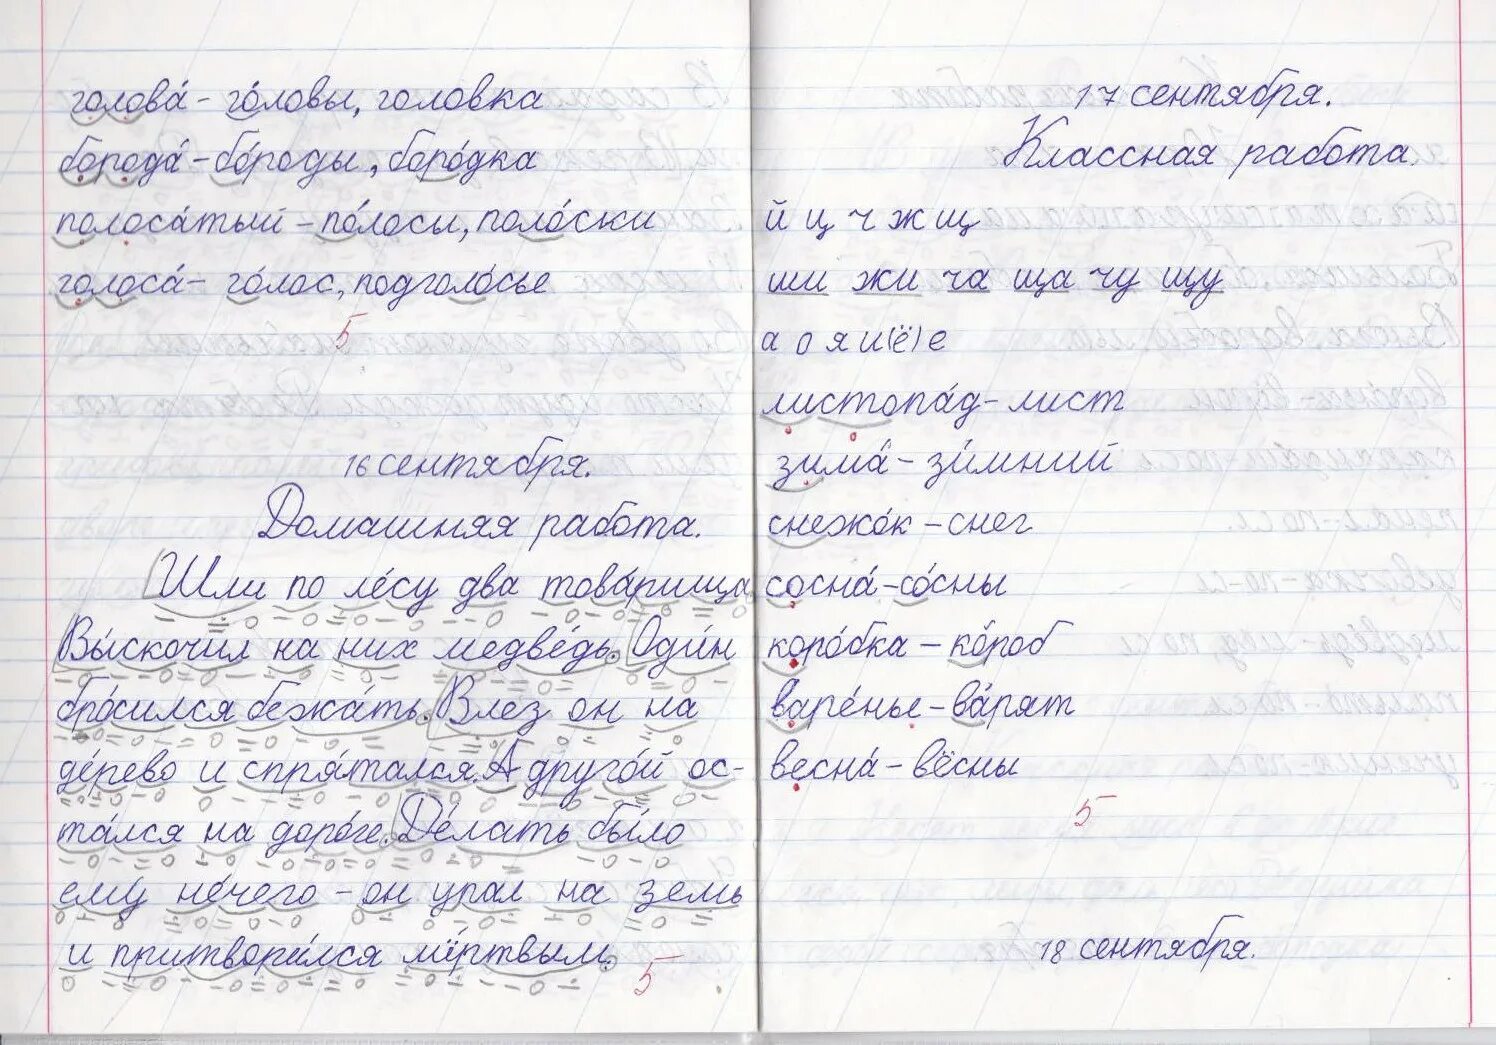 голова́ - го́ловы, головка
борода́ - бо́роды, боро́дка
полоса́тый - по́лосы, поло́ски
голоса́ - го́лос, подголо́сье
5
16 сентября.
Домашняя работа.
Шли по ле́су два това́рища.
Вы́скочил на них медве́дь. Оди́н
бро́сился бежа́ть. Влез он на
де́рево и спря́тался. А друго́й ос-
та́лся на доро́ге. Де́лать бы́ло
ему не́чего - он упал на земь
и притвори́лся мёртвым.
5
17 сентября.
Классная работа.
й ц ч ж щ
ши жи ча ща чу щу
а о я и (ё) е
листопа́д - лист
зима́ - зи́мний
снежо́к - снег
сосна́ - со́сны
коро́бка - ко́роб
варе́нье - ва́рят
весна́ - вёсны
5
18 сентября.